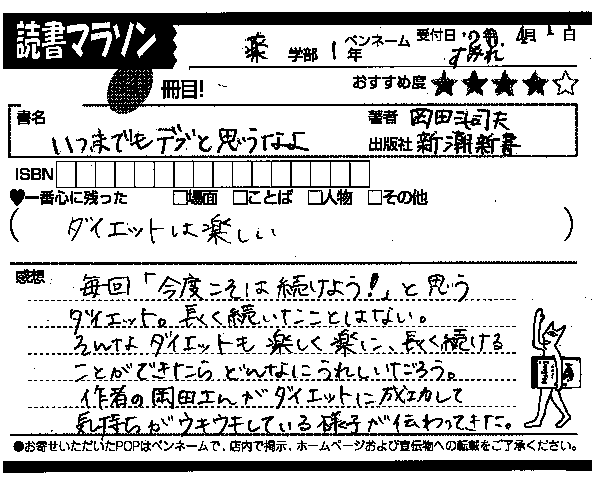 読書マラソン
薬 学部 1年 ペンネーム すみれ 受付日 4月1日
冊目!
おすすめ度 ★★★★☆
書名 いつまでもデブと思うなよ
著者 岡田斗司夫
出版社 新潮新書
ISBN
♥一番心に残った □場面 □ことば □人物 □その他
( ダイエットは楽しい )
感想
毎回「今度こそは続けよう!」と思う
ダイエット。長く続いたことはない。
そんなダイエットも楽しく楽に、長く続ける
ことができたらどんなにうれしいだろう。
作者の岡田さんがダイエットに成功して
気持ちがウキウキしている様子が伝わってきた。
●お寄せいただいたPOPはペンネームで、店内で掲示、ホームページおよび宣伝物への転載をご了承ください。